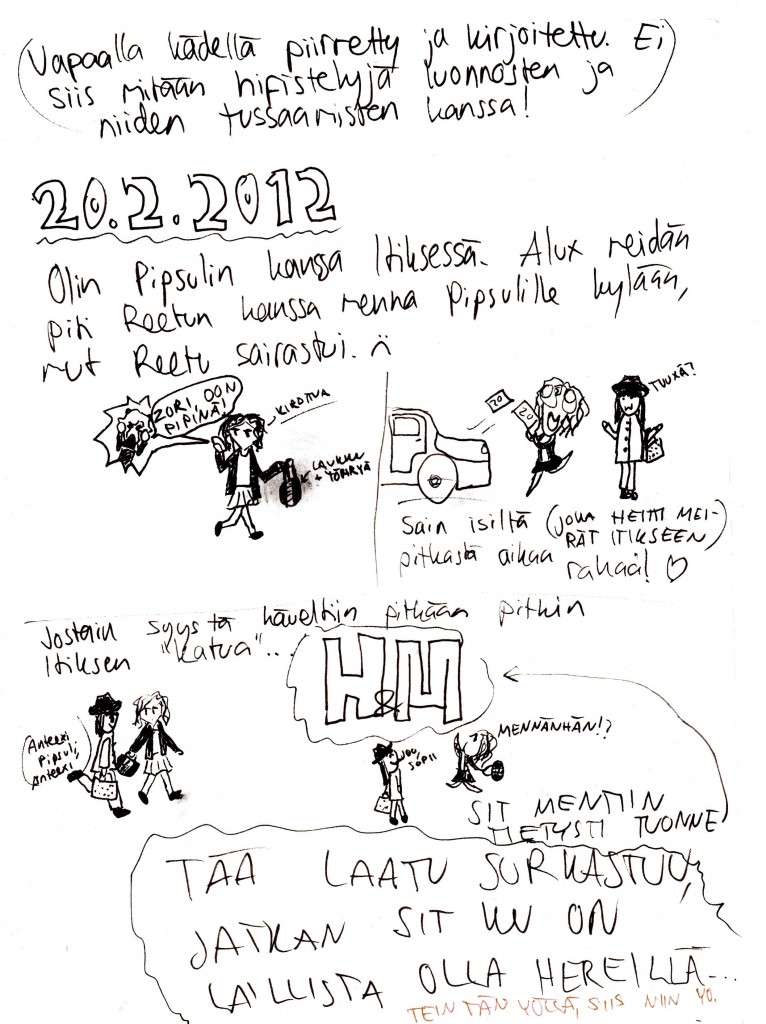 (Vapaalla kädellä piirretty ja kirjoitettu. Ei
siis mitään hifistelyjä luonnosten ja
niiden tussaamisten kanssa!)
20.2.2012
Olin Pipsulin kanssa Itiksessä. Alux meidän
piti Reetun kanssa mennä Pipsulille kylään,
mut Reetu sairastui. :(
ZORI, OON
PIPINÄ!
KIROTUA
LAUKKU
+ TÖMRYÄ
20
20
TUUXÄ?
Sain isiltä (JOKA HEITTI MEI-
RÄT ITIKSEEN)
pitkästä aikaa rahaa! ♡
Jostain syystä käveltiin pitkään pitkin
Itiksen "katua"...
H&M
Anteexi
Pipsuli,
Anteexi
JOO,
SOPII
MENNÄNHÄN!?
SIT MENTIIN
TIETYSTI TUONNE
TÄÄ LAATU SURKASTUU,
JATKAN SIT KU ON
LAILLISTA OLLA HEREILLÄ...
TEIN TÄN YÖLLÄ, SIIS NIIN YÖ.